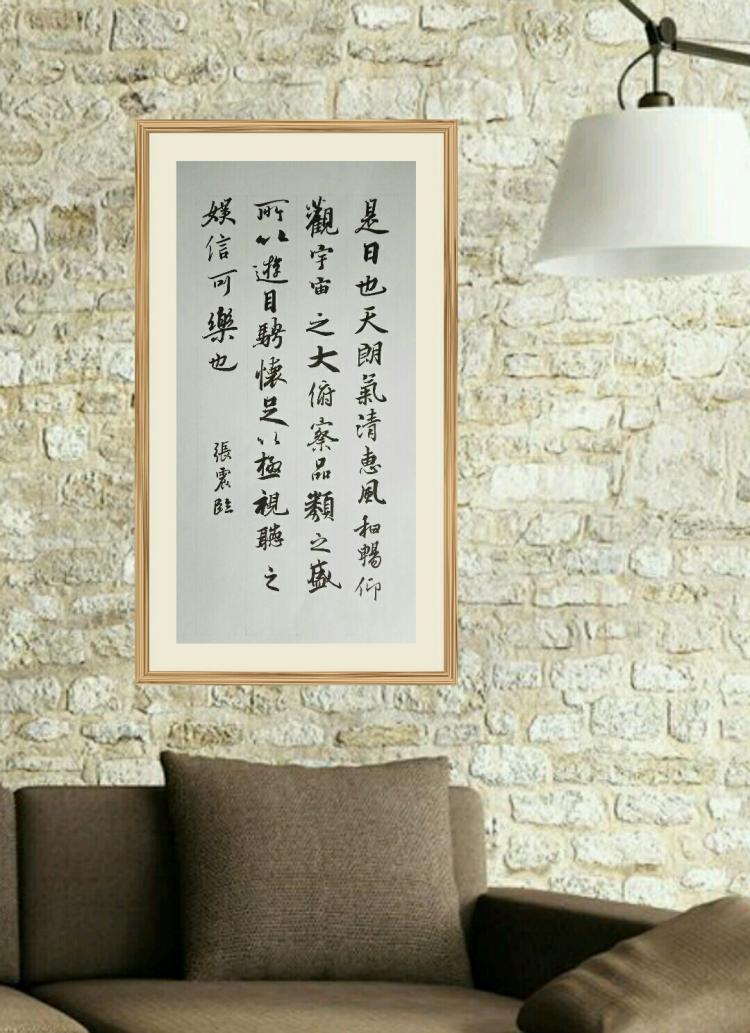 是日也天朗氣清惠風和暢仰
觀宇宙之大俯察品類之盛
所以遊目騁懷足以極視聽之
娛信可樂也
張震臨